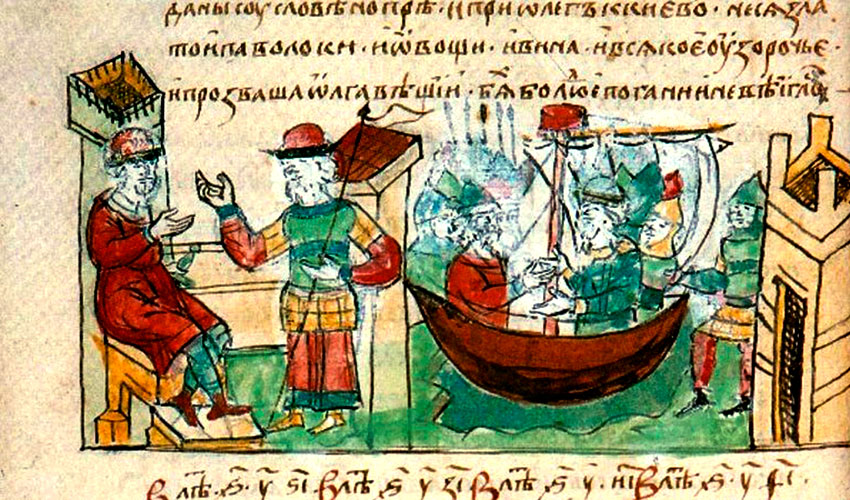 даны соу словѣно прѣ · и при ѡлегъ к києво · несѧ зла
то и паволоки · и ѡвощи · и вина · и всѧкоє оузорочьє ·
и прозваша ѡлга вѣщїи · бѧ бо лю погани и невѣигло
В лѣ · ѕ҃ · у҃ ѕі҃ · В лѣ ѕ҃ у҃ зі҃ В лѣ ѕ҃ у҃ · иі҃ В лѣ · ѕ҃ · у҃ ѳі҃ ·